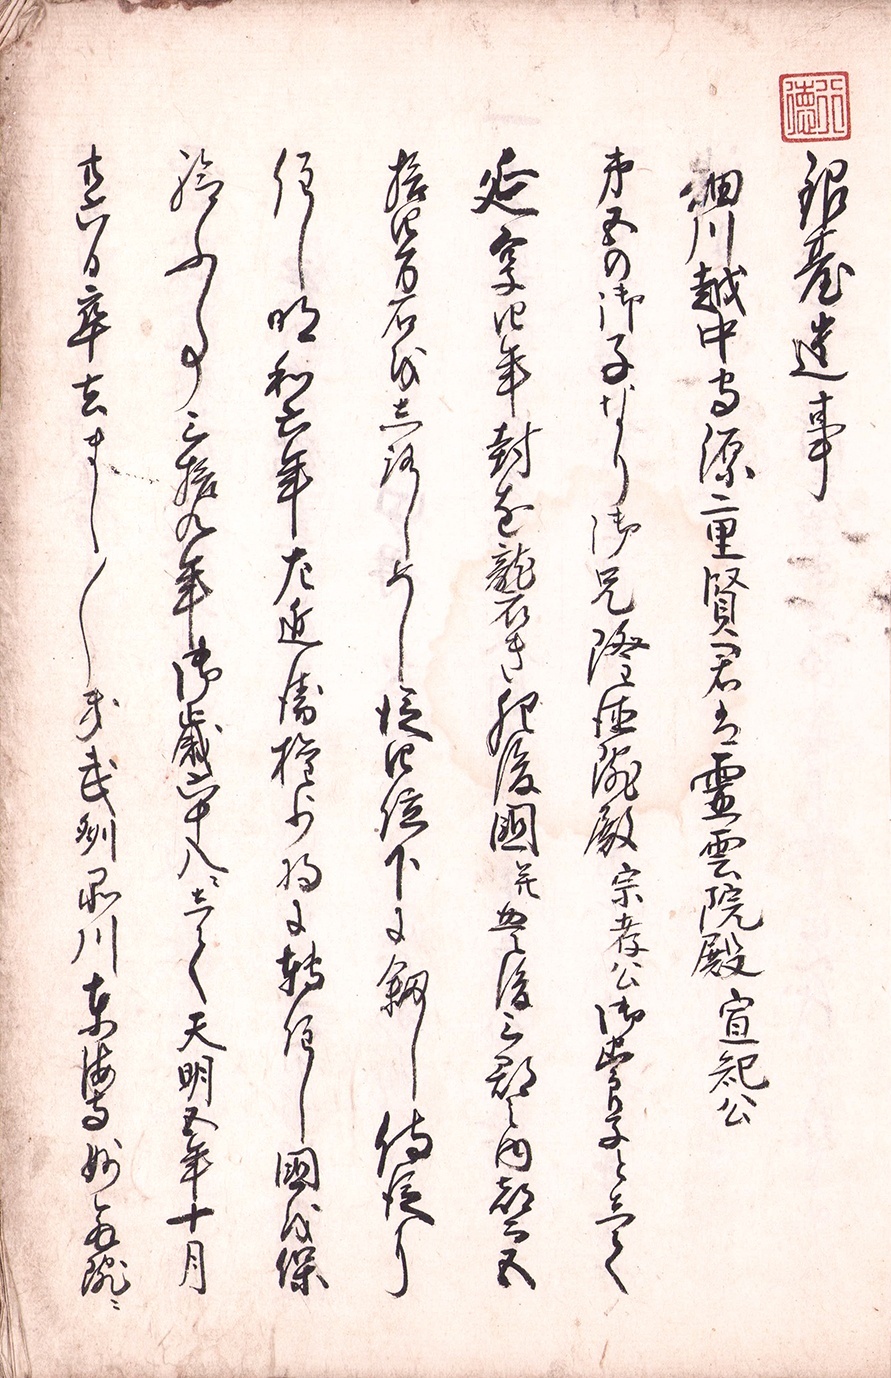 銀臺遺事
細川越中守源重賢君は靈雲院殿宣紀公
第五の御子なり御兄隆徳院殿宗孝公御世子として
延享四年封を龍衣き肥後國并豊後三郡之内都而五
拾四万石をしろしめし従四位下に叙し侍従り
任し明和六年左近衛権少将に転任し國を保
給ふ事三拾九年御歳六十八にして天明五年十月
廿六日卒去まし〱き武州品川東海寺妙解院ニ